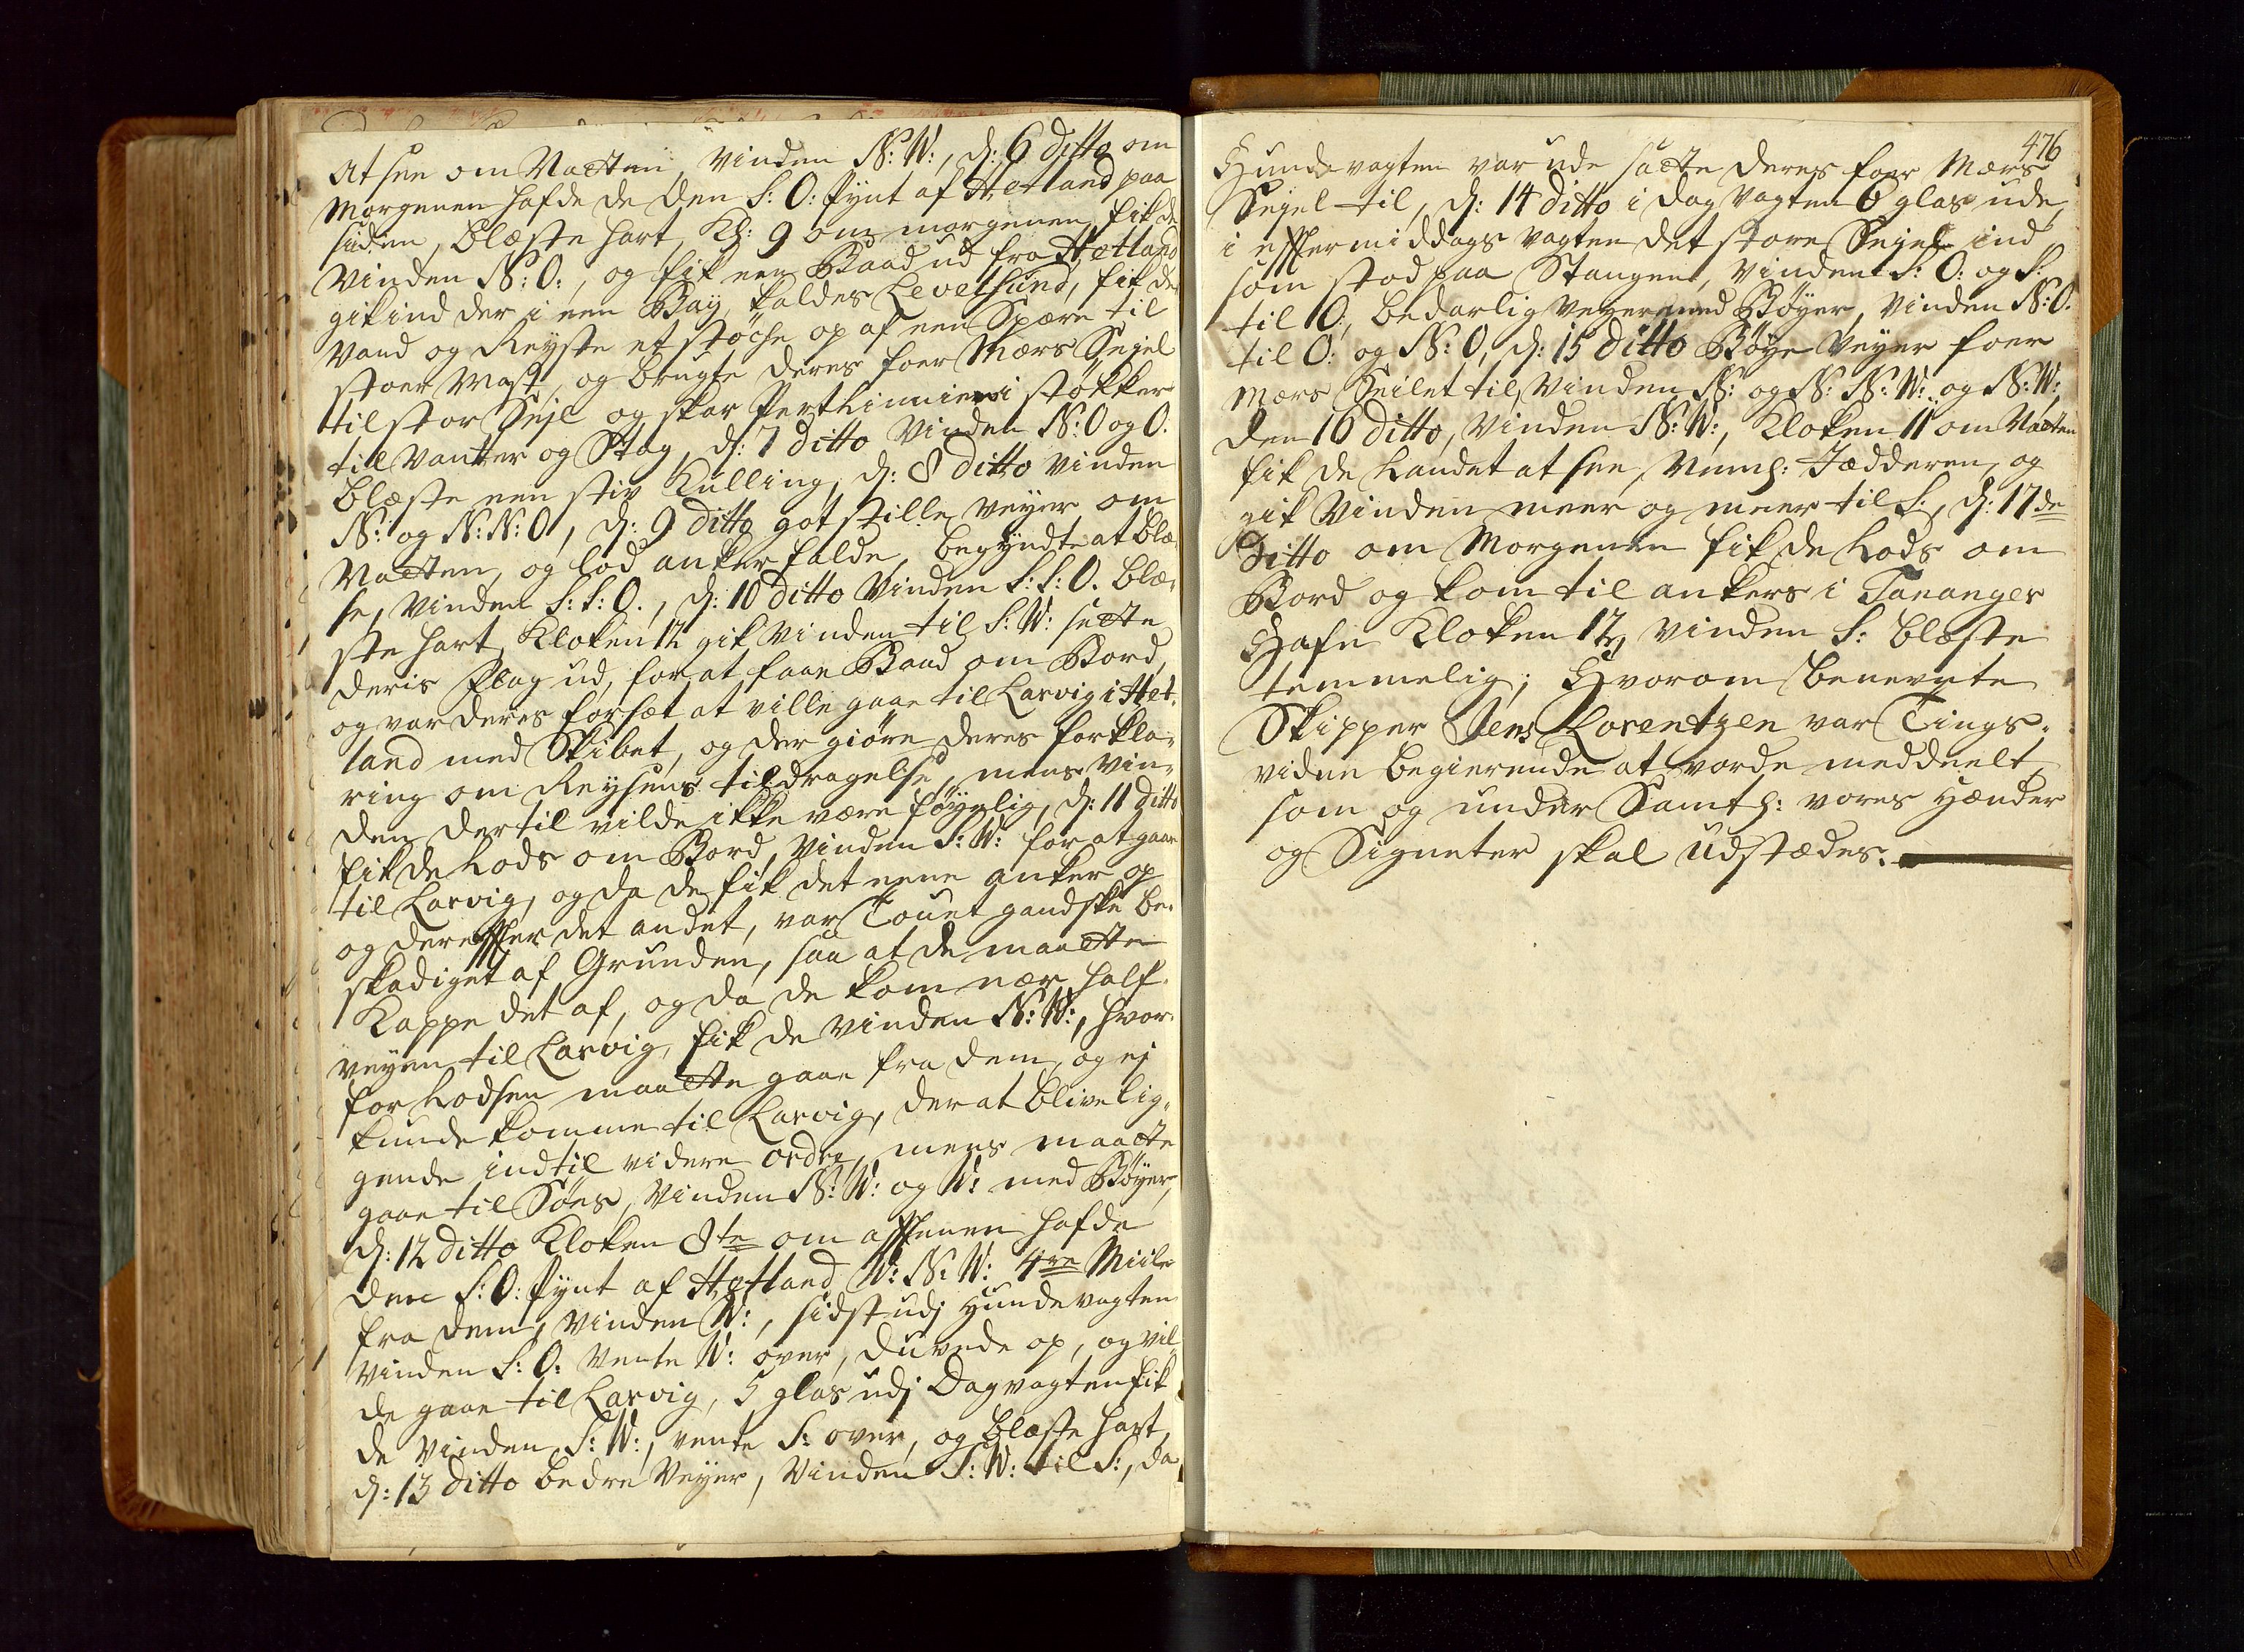 at see om Natten, Vinden N: W:, d: 6 ditto om
Morgenen hafde de den S: O: Pynt af Hetland paa
siden, blæste hart, Kl: 9 om morgenen fik de
Vinden N: O:, og fik een Baad ud fra Hetland
gik ind der i een Bay, kaldes Levelsund, fik der
Vand og Reyste et støche op af een Spære til
stoer Mast, og brugte deres foer Mærs Segel
til stor Sejl og skar Perthinnier i støkker
til Vanter og Stag, d: 7 ditto Vinden N: O og O.
blæste een stiv Kulling, d: 8 ditto Vinden
N: og N: N: O, d: 9 ditto got stille Veyer om
Natten, og lod anker falde, begyndte at blæ-
se, Vinden S: S: O., d: 10 ditto Vinden S: S: O. blæ-
ste hart, Kloken 12 gik Vinden til S: W: sette
deris Flag ud, for at faae Baad om Bord,
og var deres forsæt at ville gaae til Larvig i Het-
land med Skibet, og der giøre deres forkla-
ring om Reysens tildragelse, mens Vin-
den dertil vilde ikke være føyelig, d: 11 ditto
fik de Lods om Bord, Vinden S: W: for at gaae
til Larvig, og da de fik det eene anker op
og der effter det andet, var Touet gandske be-
skadiget af Grunden, saa at de maatte
Kappe det af, og da de kom nær half-
veyen til Larvig, fik de Vinden N: W:, hvor-
for Lodsen maatte gaae fra dem, og ej
kunde komme til Larvig, der at blive lig-
gende indtil videre ordre, mens maatte
gaae til Søes, Vinden N: W: og W: med Bøyer,
d: 12 ditto Kloken 8te om afftenen hafde
den S: O: Pynt af Hetland W: N: W: 4re Miile
fra dem, Vinden W:, sidst udj Hundevagten
Vinden S: O: Vente W: over, duvede op, og vil-
de gaae til Larvig, 5 glas udj Dagvagten fik
de Vinden S: W:, vente S: over, og blæste hart,
d: 13 ditto bedre Veyer, Vinden S: W: til S:, da
476
Hundevagten var ude satte deres foer Mærs
Segel til, d: 14 ditto i dag Vagten 6 glas ude,
i efftermiddags Vagten det store Segel ind
som stod paa Stangen, Vinden S: O: og S:
til O:, bedarlig Veyer med Bøyer, Vinden N: O.
til O: og N: O, d: 15 ditto Bøye Veyer foer
Mærs Seilet til, Vinden N: og N: N: W: og N: W:,
den 16 ditto, Vinden N: W:, Kloken 11 om Natten
fik de Landet at see, Neml: Jædderen, og
gik Vinden meer og meer til S:, d: 17de
ditto om Morgenen fik de Lods om
Bord og kom til ankers i Tananger
Hafn Kloken 12, Vinden S: blæste
temmelig; Hvorom benevnte
Skipper Jens Lorentzen var Tings-
vidne begierende at vorde meddeelt,
som og under Samtl: vores Hænder
og Signeter skal udstædes.